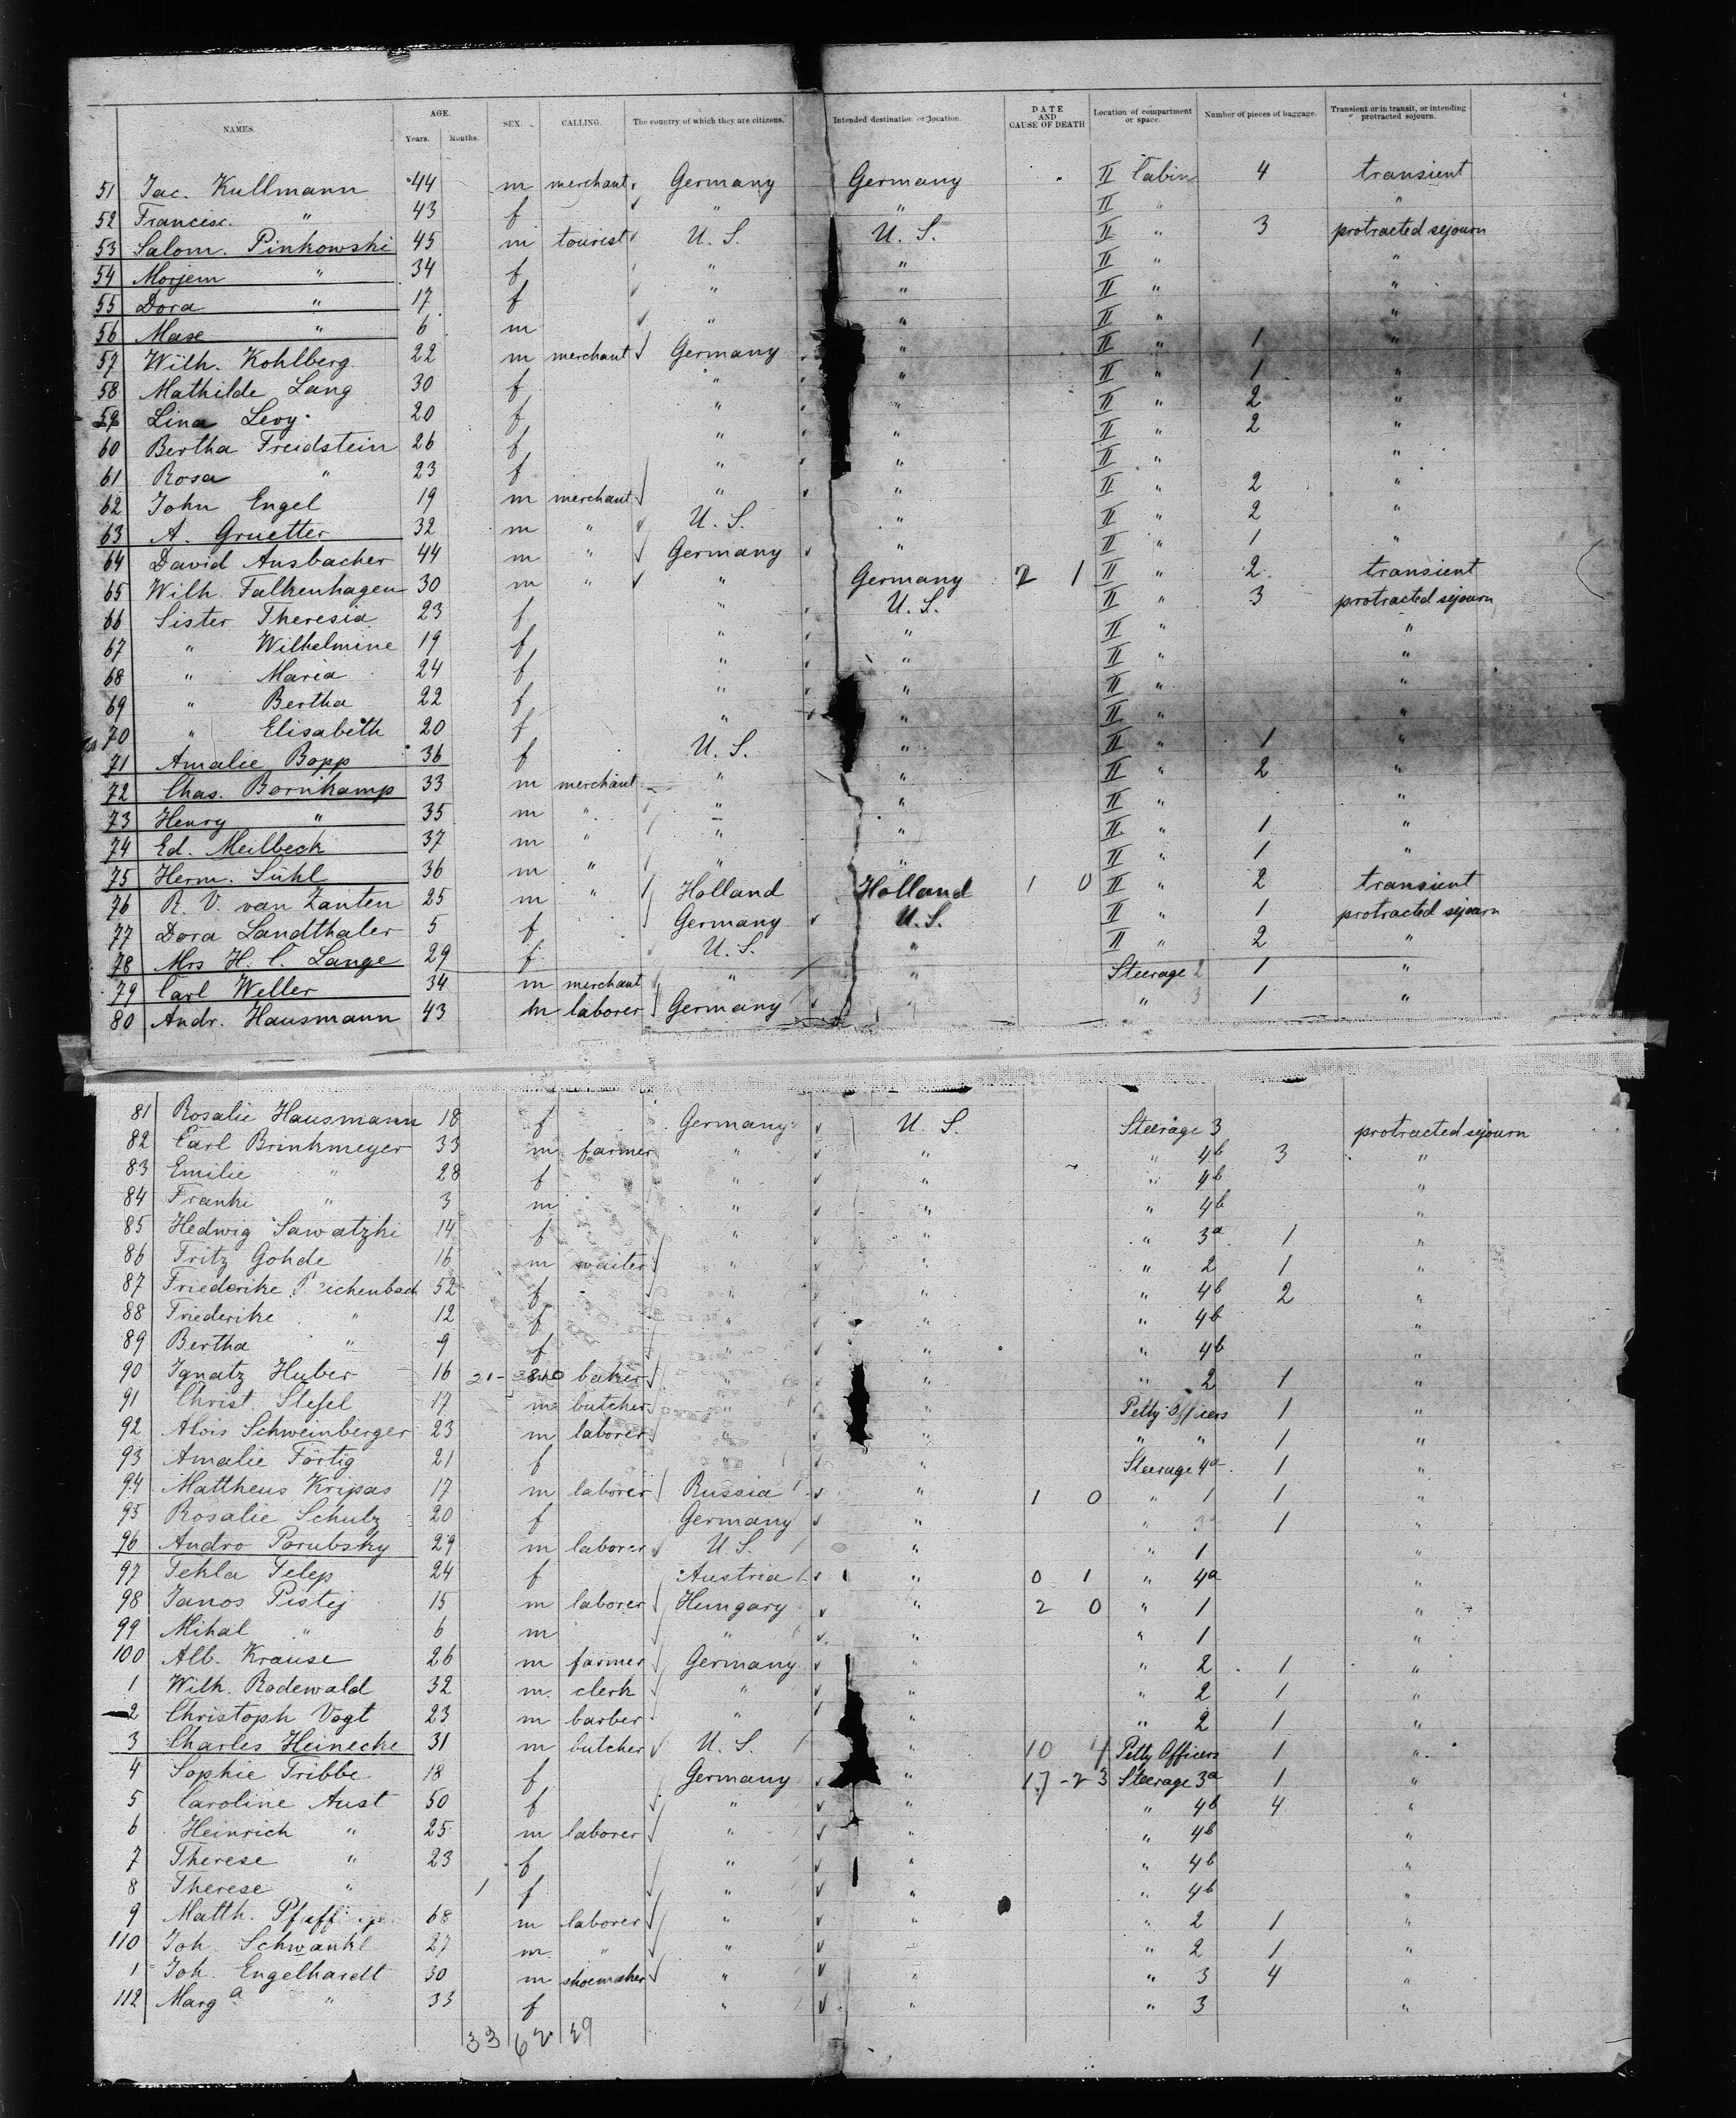 NAMES. AGE. Years. Months. SEX. CALLING. The country of which they are citizens. Intended destination or location. DATE AND CAUSE OF DEATH Location of compartment or space. Number of pieces of baggage. Transient or in transit, or intending protracted sejourn.
51 Jac. Kullmann 44 m merchant Germany Germany II Cabin 4 transient
52 Francisc. " 43 f " " II " "
53 Salom. Pinkowski 45 m tourist U. S. U. S. II " 3 protracted sejourn
54 Morjem " 34 f " " II " "
55 Dora " 17 f " " II " "
56 Mase " 6 m " " II " "
57 Wilh. Kohlberg 22 m merchant Germany " II " 1 "
58 Mathilde Lang 30 f " " II " 1 "
59 Lina Levy 20 f " " II " 2 "
60 Bertha Freidstein 26 f " " II " 2 "
61 Rosa " 23 f " " II " "
62 John Engel 19 m merchant " " II " 2 "
63 A. Gruetter 32 m " U. S. " II " 2 "
64 David Ansbacher 44 m " Germany " II " 1 "
65 Wilh. Falkenhagen 30 m " " Germany 2 1 II " 2 transient
66 Sister Theresia 23 f " U. S. II " 3 protracted sejourn
67 " Wilhelmine 19 f " " II " "
68 " Maria 24 f " " II " "
69 " Bertha 22 f " " II " "
70 " Elisabeth 20 f " " II " "
71 Amalie Bopp 36 f U. S. " II " 1 "
72 Chas. Bornkamp 33 m merchant " " II " 2 "
73 Henry " 35 m " " " II " "
74 Ed. Meilbeck 37 m " " " II " 1 "
75 Herm. Sühl 36 m " " " II " 1 "
76 R. V. van Zanten 25 m " Holland Holland 1 0 II " 2 transient
77 Dora Landthaler 5 f Germany U. S. II " 1 protracted sejourn
78 Mrs H. C. Lange 29 f U. S. " II " 2 "
79 Carl Weller 34 m merchant " " Steerage 2 1 "
80 Andr. Hausmann 43 m laborer Germany " " 3 1 "
81 Rosalie Hausmann 18 f Germany U. S. Steerage 3 protracted sejourn
82 Carl Brinkmeyer 33 m farmer " " " 4b 3 "
83 Emilie " 28 f " " " 4b "
84 Franki " 3 m " " " 4b "
85 Hedwig Sawatzki 14 f " " " 3a 1 "
86 Fritz Gohde 16 m waiter " " " 2 1 "
87 Friederike 52 f " " " 4b 2 "
88 Friederike " 12 f " " " 4b "
89 Bertha " 9 f " " " 4b "
90 Ignatz Huber 16 baker " " " 2 1 "
91 Christ. Stefel 17 m butcher " " Petty Officers 1 "
92 Alois Schweinberger 23 m laborer " " " " 1 "
93 Amalie Förtig 21 f " " Steerage 4a 1 "
94 Mattheus Kripas 17 m laborer Russia " 1 0 " 1 1 "
95 Rosalie Schulz 20 f Germany " " 1 "
96 Andro Porubsky 29 m laborer U. S. " " 1 "
97 Tekla Telep 24 f Austria " 0 1 " 4a "
98 Janos Pistej 15 m laborer Hungary " 2 0 " 1 "
99 Mihal " 6 m " " " 1 "
100 Alb. Krause 26 m farmer Germany " " 2 1 "
1 Wilh. Rodewald 32 m clerk " " " 2 1 "
2 Christoph Vogt 23 m barber " " " 2 1 "
3 Charles Heinecke 31 m butcher U. S. " 10 4 Petty Officers 1 "
4 Sophie Tribbe 18 f Germany " 17-23 Steerage 3a 1 "
5 Caroline Aust 50 f " " " 4b 4 "
6 Heinrich " 25 m laborer " " " 4b "
7 Therese " 23 f " " " 4b "
8 Therese " 1 f " " " 4b "
9 Matth. 68 m laborer " " " 2 1 "
110 Joh. Schwankl 27 m " " " " 2 1 "
1 Joh. Engelhardt 30 m shoemaker " " " 3 4 "
112 Marga " 33 f " " " 3 "
33 62 29